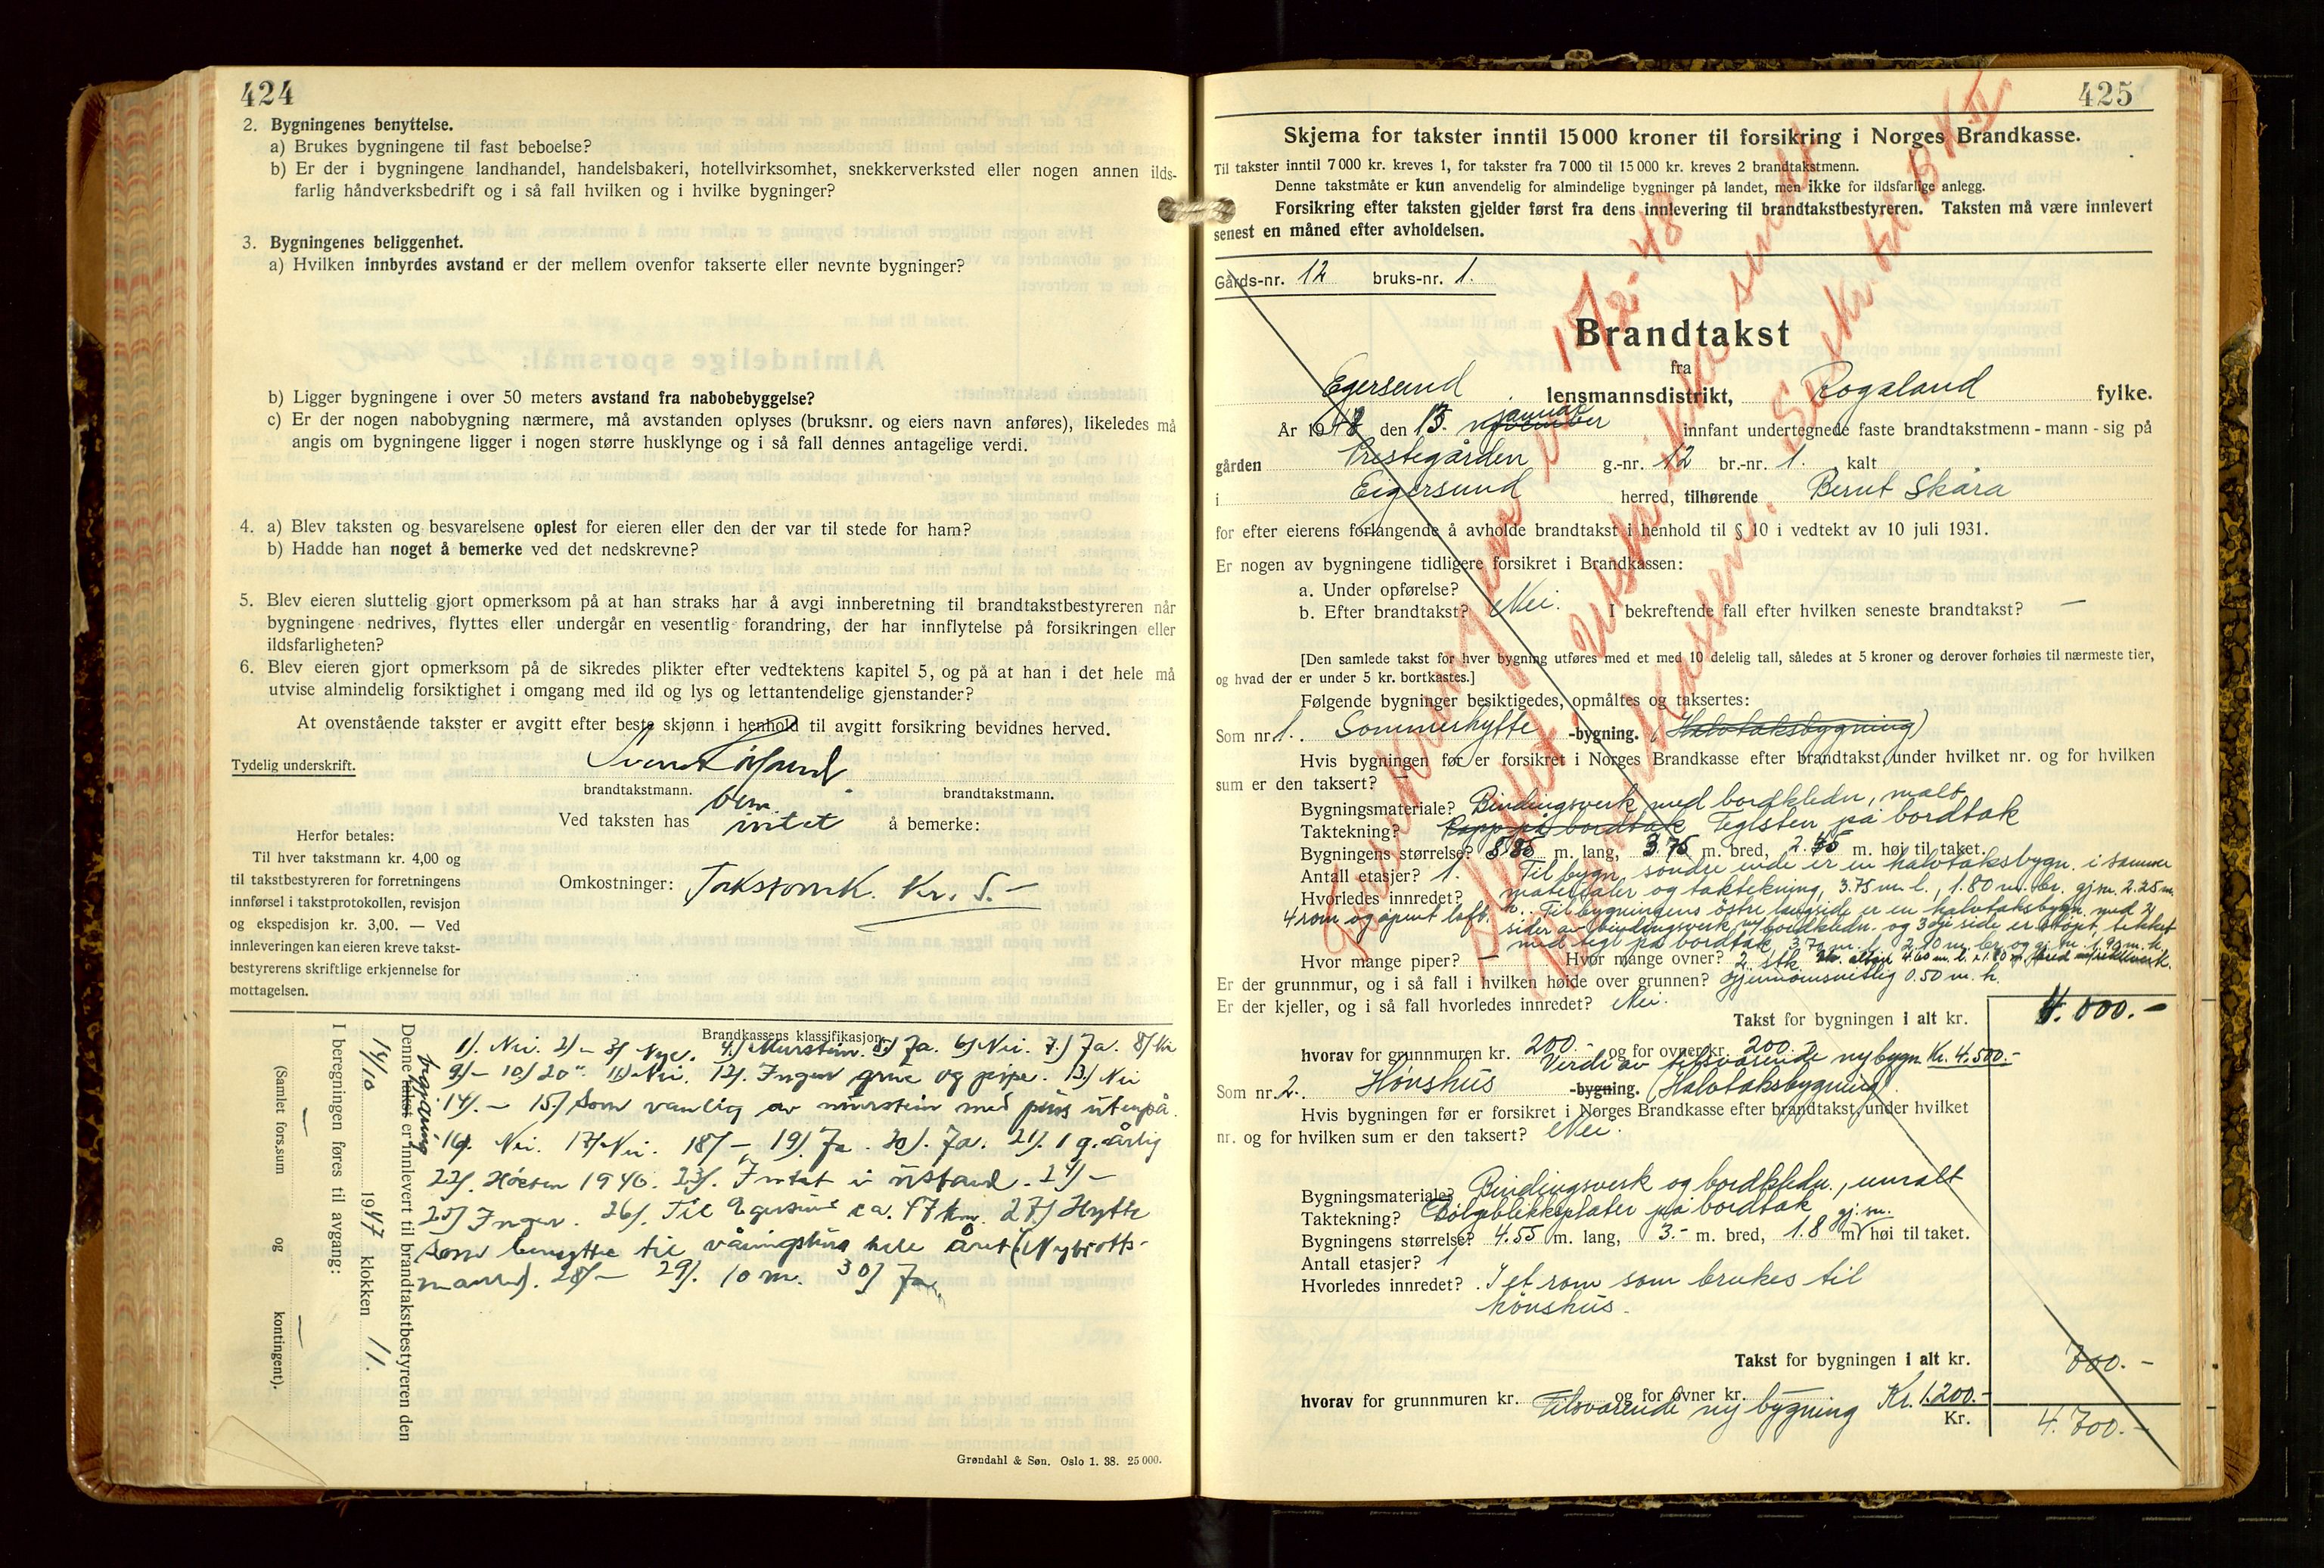 424
2. Bygningenes benyttelse.
a) Brukes bygningene til fast beboelse?
b) Er der i bygningene landhandel, handelsbakeri, hotellvirksomhet, snekkerverksted eller nogen annen ilds-
farlig håndverksbedrift og i så fall hvilken og i hvilke bygninger?
3. Bygningenes beliggenhet.
a) Hvilken innbyrdes avstand er der mellem ovenfor takserte eller nevnte bygninger?
b) Ligger bygningene i over 50 meters avstand fra nabobebyggelse?
c) Er der nogen nabobygning nærmere, må avstanden oplyses (bruksnr. og eiers navn anføres), likeledes må
angis om bygningene ligger i nogen større husklynge og i så fall dennes antagelige verdi.
4. a) Blev taksten og besvarelsene oplest for eieren eller den der var til stede for ham?
b) Hadde han noget å bemerke ved det nedskrevne?
5. Blev eieren sluttelig gjort opmerksom på at han straks har å avgi innberetning til brandtakstbestyreren når
bygningene nedrives, flyttes eller undergår en vesentlig forandring, der har innflytelse på forsikringen eller
ildsfarligheten?
6. Blev eieren gjort opmerksom på de sikredes plikter efter vedtektens kapitel 5, og på at han i det hele må
utvise almindelig forsiktighet i omgang med ild og lys og lettantendelige gjenstander?
At ovenstående takster er avgitt efter beste skjønn i henhold til avgitt forsikring bevidnes herved.
Tydelig underskrift.
brandtakstmann. brandtakstmann.
Ved taksten has intet å bemerke:
Herfor betales:
Til hver takstmann kr. 4,00 og
til takstbestyreren for forretningens
innførsel i takstprotokollen, revisjon
og ekspedisjon kr. 3,00. — Ved
innleveringen kan eieren kreve takst-
bestyrerens skriftlige erkjennelse for
mottagelsen.
Omkostninger: Kr. 5.-
Brandkassens klassifikasjon:
1). Nei. 2) - 3) Nye. 4.) Murstein. 5.) Ja. 6) Nei. 7.) Ja. 8) Nei
9.) - 10) 20". 11) Nei. 12). Ingen grue og pipe. 13.) Nei
14). - 15.) Som vanlig av murstein med puss utenpå.
16). Nei. 17) Nei. 18) -, 19). Ja. 20). Ja. 21). 1 g. årlig
22). Høsten 1946. 23). Intet i ustand. 24) -
25) Ingen. 26). Til Egersund ca. 47 km. 27.) Hytte
som benyttes til våningshus hele året (Nybrotts-
mannen). 28) - 29). 10 m. 30) Ja.
Denne takst er innlevert til brandtakstbestyreren den
14/10 1947 klokken 11.
I beregningen føres til avgang:
(Samlet fors.sum — og — kontingent).
Grøndahl & Søn. Oslo 1. 38. 25 000.
425
Skjema for takster inntil 15 000 kroner til forsikring i Norges Brandkasse.
Til takster inntil 7 000 kr. kreves 1, for takster fra 7 000 til 15 000 kr. kreves 2 brandtakstmenn.
Denne takstmåte er kun anvendelig for almindelige bygninger på landet, men ikke for ildsfarlige anlegg.
Forsikring efter taksten gjelder først fra dens innlevering til brandtakstbestyreren. Taksten må være innlevert
senest en måned efter avholdelsen.
Gårds-nr. 12 bruks-nr. 1.
Brandtakst
fra
Egersund lensmannsdistrikt, Rogaland fylke.
År 1948 den 13. januar innfant undertegnede faste brandtakstmenn - mann - sig på
gården Prestegården g.-nr. 12 br.-nr. 1. kalt
i Eigersund herred, tilhørende Bernt Skåra
for efter eierens forlangende å avholde brandtakst i henhold til § 10 i vedtekt av 10 juli 1931.
Er nogen av bygningene tidligere forsikret i Brandkassen:
a. Under opførelse?
b. Efter brandtakst? Nei. I bekreftende fall efter hvilken seneste brandtakst? —
[Den samlede takst for hver bygning utføres med et med 10 delelig tall, således at 5 kroner og derover forhøies til nærmeste tier,
og hvad der er under 5 kr. bortkastes.]
Følgende bygninger besiktigedes, opmåltes og taksertes:
Som nr. 1. Sommerhytte -bygning. (Halvtaksbygning)
Hvis bygningen før er forsikret i Norges Brandkasse efter brandtakst, under hvilket nr. og for hvilken
sum er den taksert? —
Bygningsmateriale? Bindingsverk med bordkledn, malt
Taktekning? Papp på bordtak Teglsten på bordtak
Bygningens størrelse? 8.85 m. lang, 3.75 m. bred, 2.45 m. høi til taket.
Antall etasjer? 1. Til bygn. søndre ende er en halvtaksbygn. i samme
Hvorledes innredet? materialer og taktekning, 3.75 m. l., 1.80 m. br. gj.sn. 2.25 m.
4 rom og åpent loft. h. Til bygningens østre langside er en halvtaksbygn. med 2
sider av bindingsverk m/ bordkledn. og 3dje side er støpt, tekket
med tegl på bordtak 3.70 m. l. 2.10 m. br. og gj. sn. 1.90 m. h.
Hvor mange piper? — Hvor mange ovner? 2 stk.
Er der grunnmur, og i så fall i hvilken høide over grunnen? Gjennomsnitlig 0.50 m. h.
Er der kjeller, og i så fall hvorledes innredet? Nei.
Takst for bygningen i alt kr. 4.000.-
hvorav for grunnmuren kr. 200.- og for ovner kr. 200.-
Verdi av tilsvarende nybygn. Kr. 4.500.-
Som nr. 2. Hønshus -bygning. (Halvtaksbygning)
Hvis bygningen før er forsikret i Norges Brandkasse efter brandtakst, under hvilket
nr. og for hvilken sum er den taksert? Nei.
Bygningsmateriale? Bindingsverk og bordkledn., umalt
Taktekning? Bølgeblikkplater på bordtak
Bygningens størrelse? 4.55 m. lang, 3.- m. bred, gj.sn. 1.8 m. høi til taket.
Antall etasjer? 1
Hvorledes innredet? I et rom som brukes til
hønshus.
Takst for bygningen i alt kr. 700.-
hvorav for grunnmuren kr. — og for ovner kr. —
Tilsvarende ny bygning Kr. 1.200.-
Kr. 4.700.-